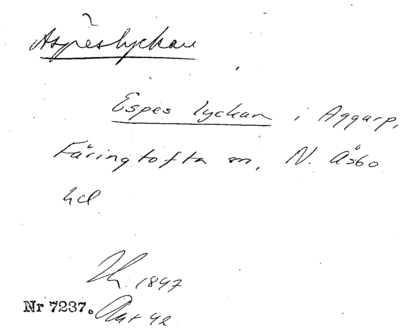 Aspeslyckan
Espes lyckan i Aggarp,
Färingtofta sn, N. Åsbo
hd
1847
Nr 7237. 42